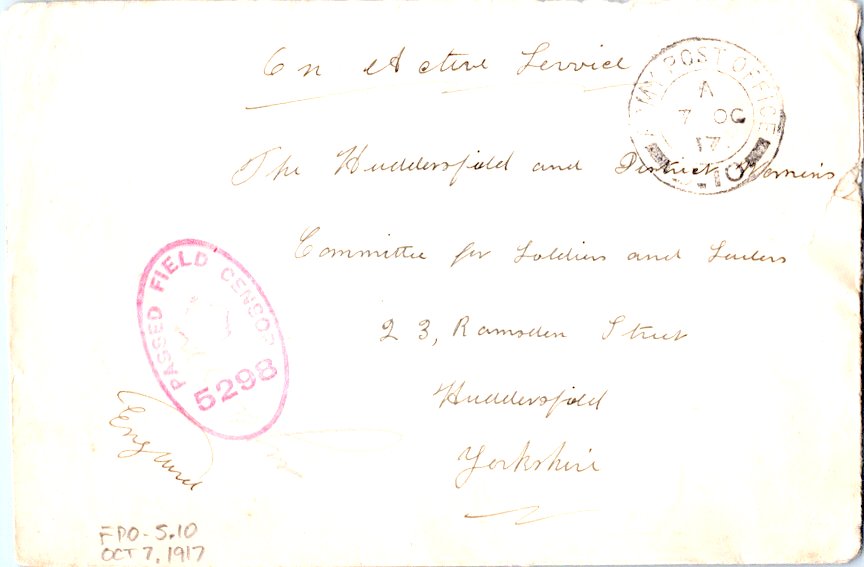 On Active Service
ARMY POST OFFICE
A
7 OC
17
S.10
The Huddersfield and District Women's
Committee for Soldiers and Sailors
23, Ramsden Street
Huddersfield
Yorkshire
PASSED FIELD CENSOR
5298
England
FPO-S.10
OCT 7, 1917